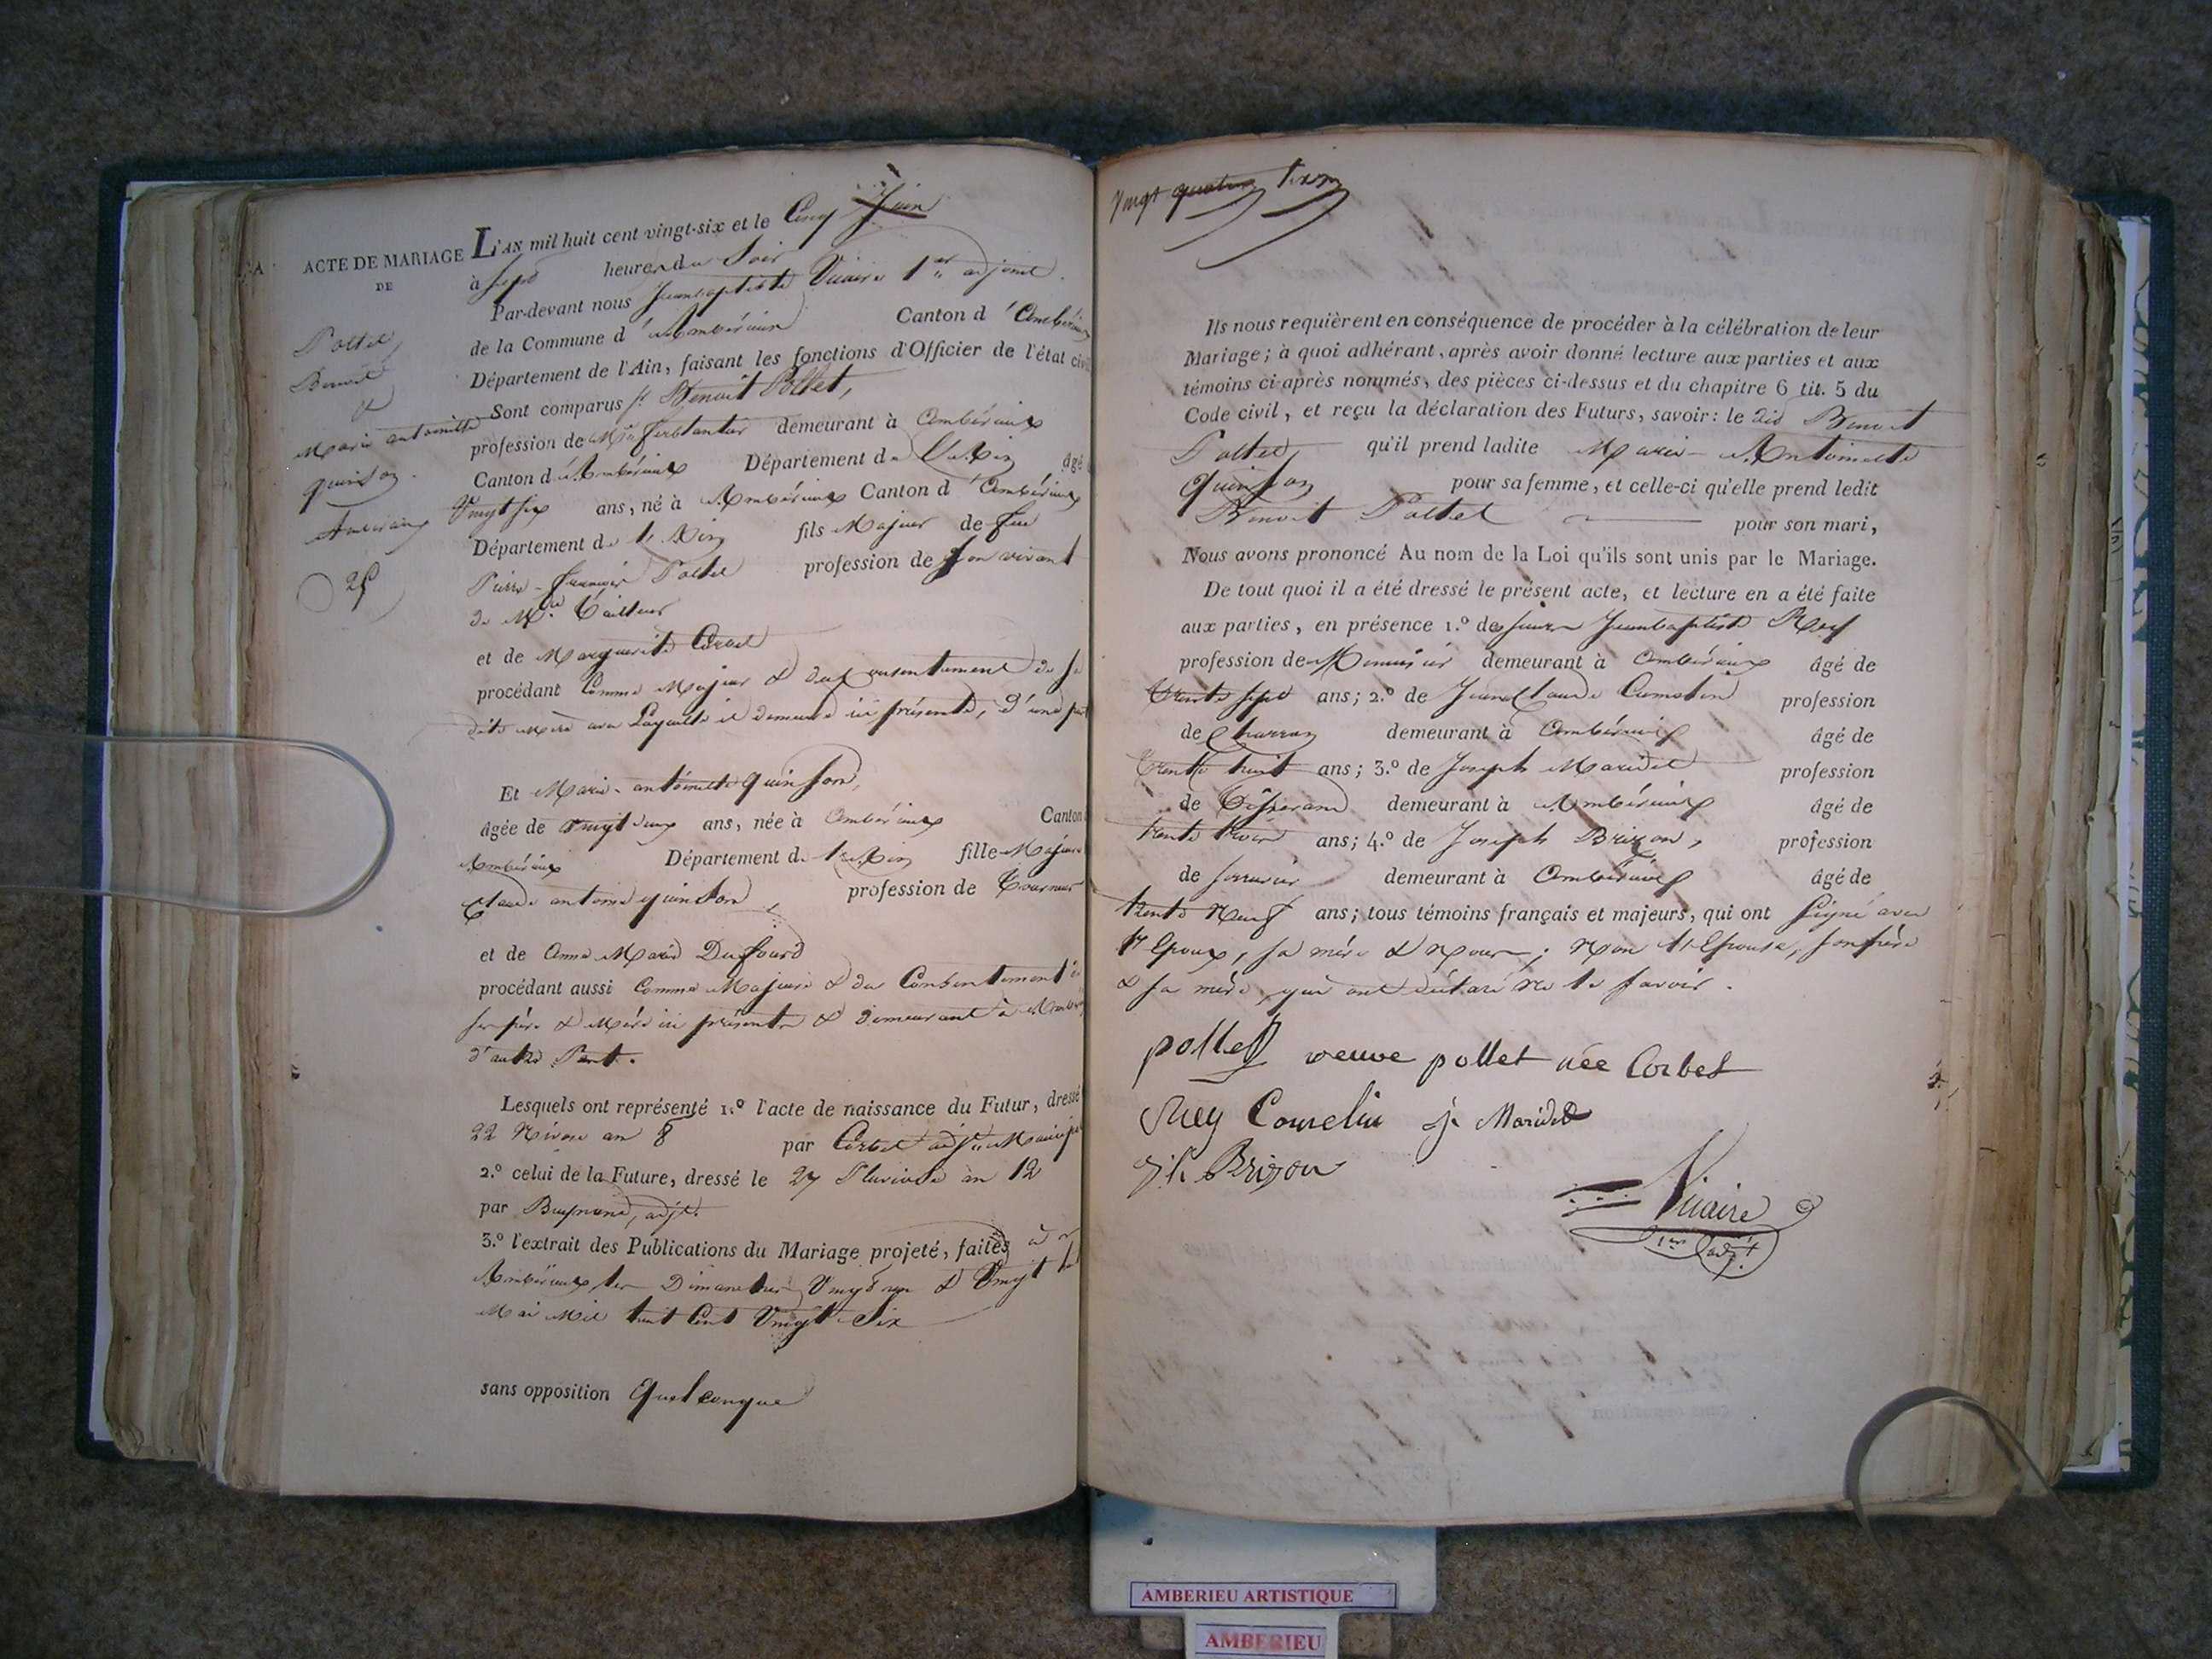 ACTE DE MARIAGE
DE
Pollet,
Benoit
&
Marie antoinette
quinson.
Ambérieux
25
L'AN mil huit cent vingt-six et le Cinq Juin
à Sept heures du Soir
Par-devant nous Jeanbaptiste Vicaire 1er adjoint
de la Commune d'Ambérieux Canton d'Ambérieux
Département de l'Ain, faisant les fonctions d'Officier de l'état civil
Sont comparus sr Benoit Pollet,
profession de Md ferblantier demeurant à Ambérieux
Canton d'Ambérieux Département de L'Ain âgé
Vingt six ans, né à Ambérieux Canton d'Ambérieux
Département de l'Ain fils Majeur de feu
Pierre-françois Pollet profession de Son vivant
de Md Tailleur
et de Marguerite Corbet
procédant Comme Majeur & du Consentement de sa
dite Mère avec Laquelle il demeure ici présente, d'une part
Et Marie-antoinette quinson,
âgée de Vingt deux ans, née à Ambérieux Canton
Ambérieux Département de l'Ain fille Majeure
Claude antoine quinson, profession de Tourneur
et de Anne Marie Dufourd
procédant aussi Comme Majeure & du Consentement de
ses père & Mère ici présents & demeurant à
d'autre Part.
Lesquels ont représenté 1.º l'acte de naissance du Futur, dressé
22 Nivose an 8 par Corbet adjt
2.º celui de la Future, dressé le 27 Pluviose an 12
par adjt.
3.º l'extrait des Publications du Mariage projeté, faites à
Ambérieux les Dimanches Vingt un & Vingt huit
Mai Mil huit Cent Vingt-Six
sans opposition Quelconque
Vingt quatre
Ils nous requièrent en conséquence de procéder à la célébration de leur
Mariage; à quoi adhérant, après avoir donné lecture aux parties et aux
témoins ci-après nommés, des pièces ci-dessus et du chapitre 6 tit. 5 du
Code civil, et reçu la déclaration des Futurs, savoir: le dit Benoit
Pollet, qu'il prend ladite Marie-Antoinette
Quinson pour sa femme, et celle-ci qu'elle prend ledit
Benoit Pollet pour son mari,
Nous avons prononcé Au nom de la Loi qu'ils sont unis par le Mariage.
De tout quoi il a été dressé le présent acte, et lecture en a été faite
aux parties, en présence 1.º de Jeanbaptiste Rey
profession de Menuisier demeurant à Ambérieux âgé de
Trente sept ans; 2.º de Jean Claude profession
de Charron demeurant à Ambérieux âgé de
Trente huit ans; 3.º de Joseph Maridet profession
de Tisserand demeurant à Ambérieux âgé de
trente trois ans; 4.º de Joseph Brizon, profession
de Serrurier demeurant à Ambérieux âgé de
trente Neuf ans; tous témoins français et majeurs, qui ont Signé avec
l'Epoux, sa mère & Nous; Non l'Epouse, son père
& sa mère, qui ont déclaré Ne le Savoir.
pollet veuve pollet née Corbet
Rey j. Maridet
Jh Brizon
Vicaire
1er adjt
AMBERIEU ARTISTIQUE
AMBERIEU